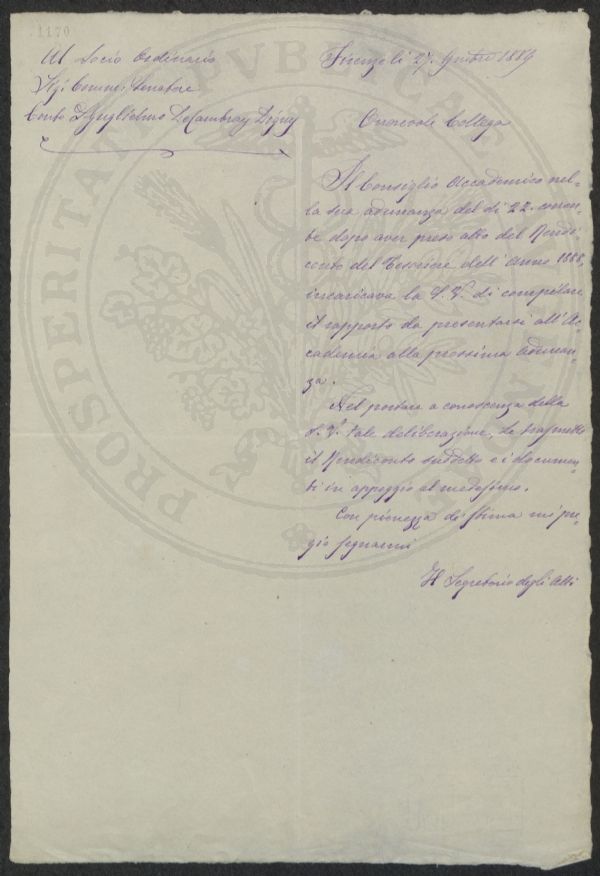 1170
Al Socio Ordinario
Sig. Comm. Senatore
Conte Guglielmo De Cambray Digny
Firenze li 27. 9mbre 1889
Onorevole Collega
Il Consiglio Accademico nel-
la sua adunanza del di 22. corren-
te dopo aver preso atto del Rendi-
conto del Tesoriere dell'Anno 1888,
incaricava la S. V. di compilare
il rapporto da presentarsi all'Ac-
cademia alla prossima adunan-
za.
Nel portare a conoscenza della
S. V. tale deliberazione, Le trasmetto
il Rendiconto suddetto e i documen-
ti in appoggio al medesimo.
Con pienezza di stima mi pre-
gio segnarmi
Il Segretario degli Atti
PROSPERITATI PVBLICAE